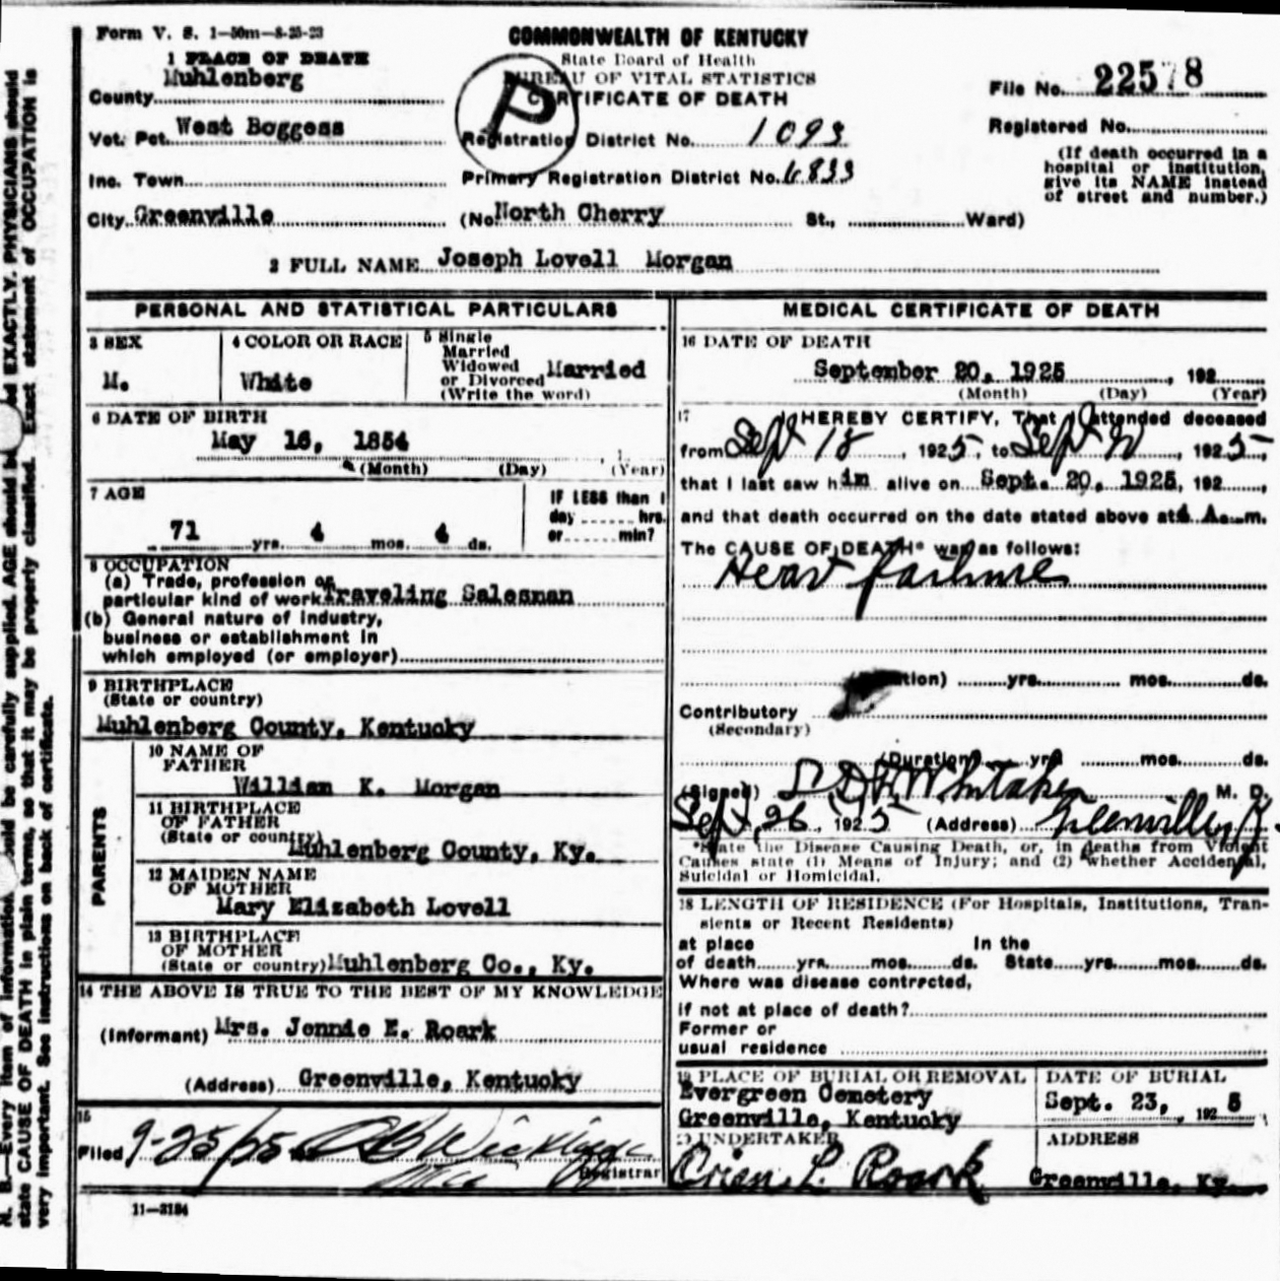 Form V. S. 1—50m—8-25-23
COMMONWEALTH OF KENTUCKY
State Board of Health
BUREAU OF VITAL STATISTICS
CERTIFICATE OF DEATH
P
File No. 22578
Registered No.
(If death occurred in a
hospital or institution,
give its NAME instead
of street and number.)
1 PLACE OF DEATH
County Muhlenberg
Vot. Pct. West Boggess
Registration District No. 1093
Inc. Town
Primary Registration District No. 6833
City Greenville
(No. North Cherry St., Ward)
2 FULL NAME Joseph Lovell Morgan
PERSONAL AND STATISTICAL PARTICULARS
3 SEX
M.
4 COLOR OR RACE
White
5 Single
Married
Widowed
or Divorced
(Write the word)
Married
6 DATE OF BIRTH
May 16, 1854
(Month) (Day) , 1 (Year)
7 AGE
71 yrs. 4 mos. 4 ds.
IF LESS than 1
day hrs.
or min?
8 OCCUPATION
(a) Trade, profession or
particular kind of work Traveling Salesman
(b) General nature of industry,
business or establishment in
which employed (or employer)
9 BIRTHPLACE
(State or country)
Muhlenberg County, Kentucky
PARENTS
10 NAME OF
FATHER
William K. Morgan
11 BIRTHPLACE
OF FATHER
(State or country)
Muhlenberg County, Ky.
12 MAIDEN NAME
OF MOTHER
Mary Elizabeth Lovell
13 BIRTHPLACE
OF MOTHER
(State or country) Muhlenberg Co., Ky.
14 THE ABOVE IS TRUE TO THE BEST OF MY KNOWLEDGE
(Informant) Mrs. Jennie E. Roark
(Address) Greenville, Kentucky
15
Filed 9-25/25
Registrar
11—3184
MEDICAL CERTIFICATE OF DEATH
16 DATE OF DEATH
September 20, 1925, 192
(Month) (Day) (Year)
17 I HEREBY CERTIFY, That I attended deceased
from Sept 18, 1925, to Sept 20, 1925,
that I last saw him alive on Sept. 20, 1925, 192,
and that death occurred on the date stated above at 4 A. m.
The CAUSE OF DEATH* was as follows:
Heart failure
(Duration) yrs. mos. ds.
Contributory
(Secondary)
(Duration) yrs. mos. ds.
(Signed) Whitaker M. D.
Sept, 26, 1925 (Address) Greenville, K
*State the Disease Causing Death, or, in deaths from Violent
Causes state (1) Means of Injury; and (2) whether Accidental,
Suicidal or Homicidal.
18 LENGTH OF RESIDENCE (For Hospitals, Institutions, Tran-
sients or Recent Residents)
at place In the
of death yrs. mos. ds. State yrs. mos. ds.
Where was disease contracted,
if not at place of death?
Former or
usual residence
19 PLACE OF BURIAL OR REMOVAL
Evergreen Cemetery
Greenville, Kentucky
DATE OF BURIAL
Sept. 23, 1925
20 UNDERTAKER
Orien L. Roark
ADDRESS
Greenville, Ky.
N. B.—Every item of information should be carefully supplied. AGE should be stated EXACTLY. PHYSICIANS should
state CAUSE OF DEATH in plain terms, so that it may be properly classified. Exact statement of OCCUPATION is
very important. See instructions on back of certificate.